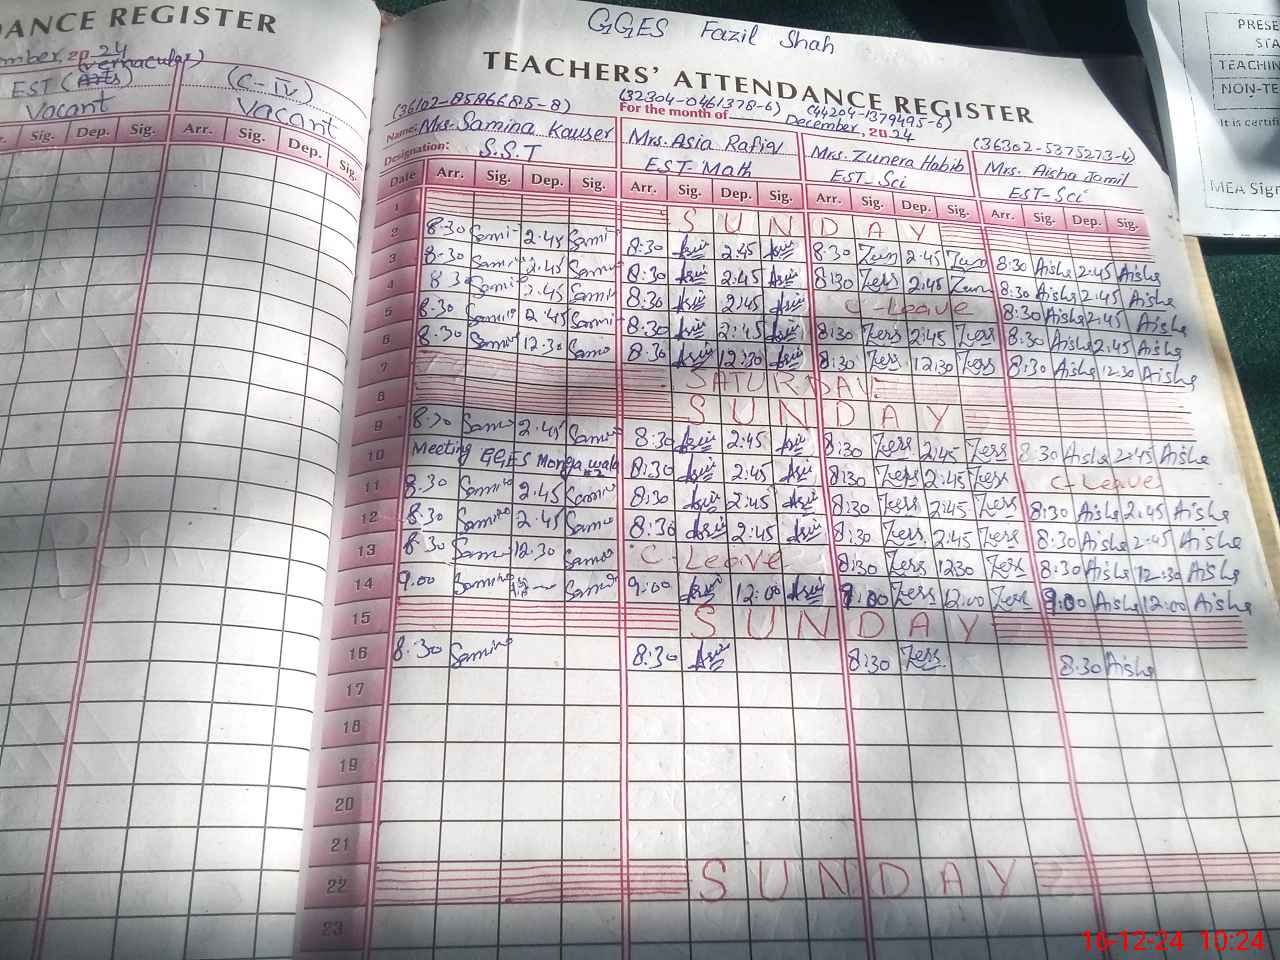 DANCE REGISTER
mber, 20 24
EST (Arts) (vernacular)
Vacant
(C-IV)
Vacant
Sig. Dep. Sig. Arr. Sig. Dep. Sig.
GGES Fazil Shah
TEACHERS' ATTENDANCE REGISTER
For the month of December, 2024
(36102-8586685-8) (32304-0461378-6) (44204-1379495-6) (36302-5375273-4)
Name: Mrs. Samina Kauser Mrs. Asia Rafiq Mrs. Zunera Habib Mrs. Aisha Jamil
Designation: S.S.T EST-Math EST-Sci EST-Sci
Date Arr. Sig. Dep. Sig. Arr. Sig. Dep. Sig. Arr. Sig. Dep. Sig. Arr. Sig. Dep. Sig.
1 SUNDAY
2 8:30 2:45 8:30 2:45 8:30 2:45 8:30 Aisha 2:45 Aisha
3 8:30 2:45 8:30 2:45 8:30 2:45 8:30 Aisha 2:45 Aisha
4 8:30 2:45 8:30 2:45 C-Leave 8:30 Aisha 2:45 Aisha
5 8:30 2:45 8:30 2:45 8:30 2:45 8:30 Aisha 2:45 Aisha
6 8:30 12:30 8:30 12:30 8:30 12:30 8:30 Aisha 12:30 Aisha
7 SATURDAY
8 SUNDAY
9 8:30 2:45 8:30 2:45 8:30 2:45 8:30 Aisha 2:45 Aisha
10 Meeting GGES 8:30 2:45 8:30 2:45 C-Leave
11 8:30 2:45 8:30 2:45 8:30 2:45 8:30 Aisha 2:45 Aisha
12 8:30 2:45 8:30 2:45 8:30 2:45 8:30 Aisha 2:45 Aisha
13 8:30 12:30 C-Leave 8:30 12:30 8:30 Aisha 12:30 Aisha
14 9:00 9:00 12:00 9:00 12:00 9:00 Aisha 12:00 Aisha
15 SUNDAY
16 8:30 8:30 8:30 8:30 Aisha
17
18
19
20
21
22 SUNDAY
23
PRESE
STA
TEACHIN
NON-TE
It is certifi
MEA Sign
16-12-24 10:24